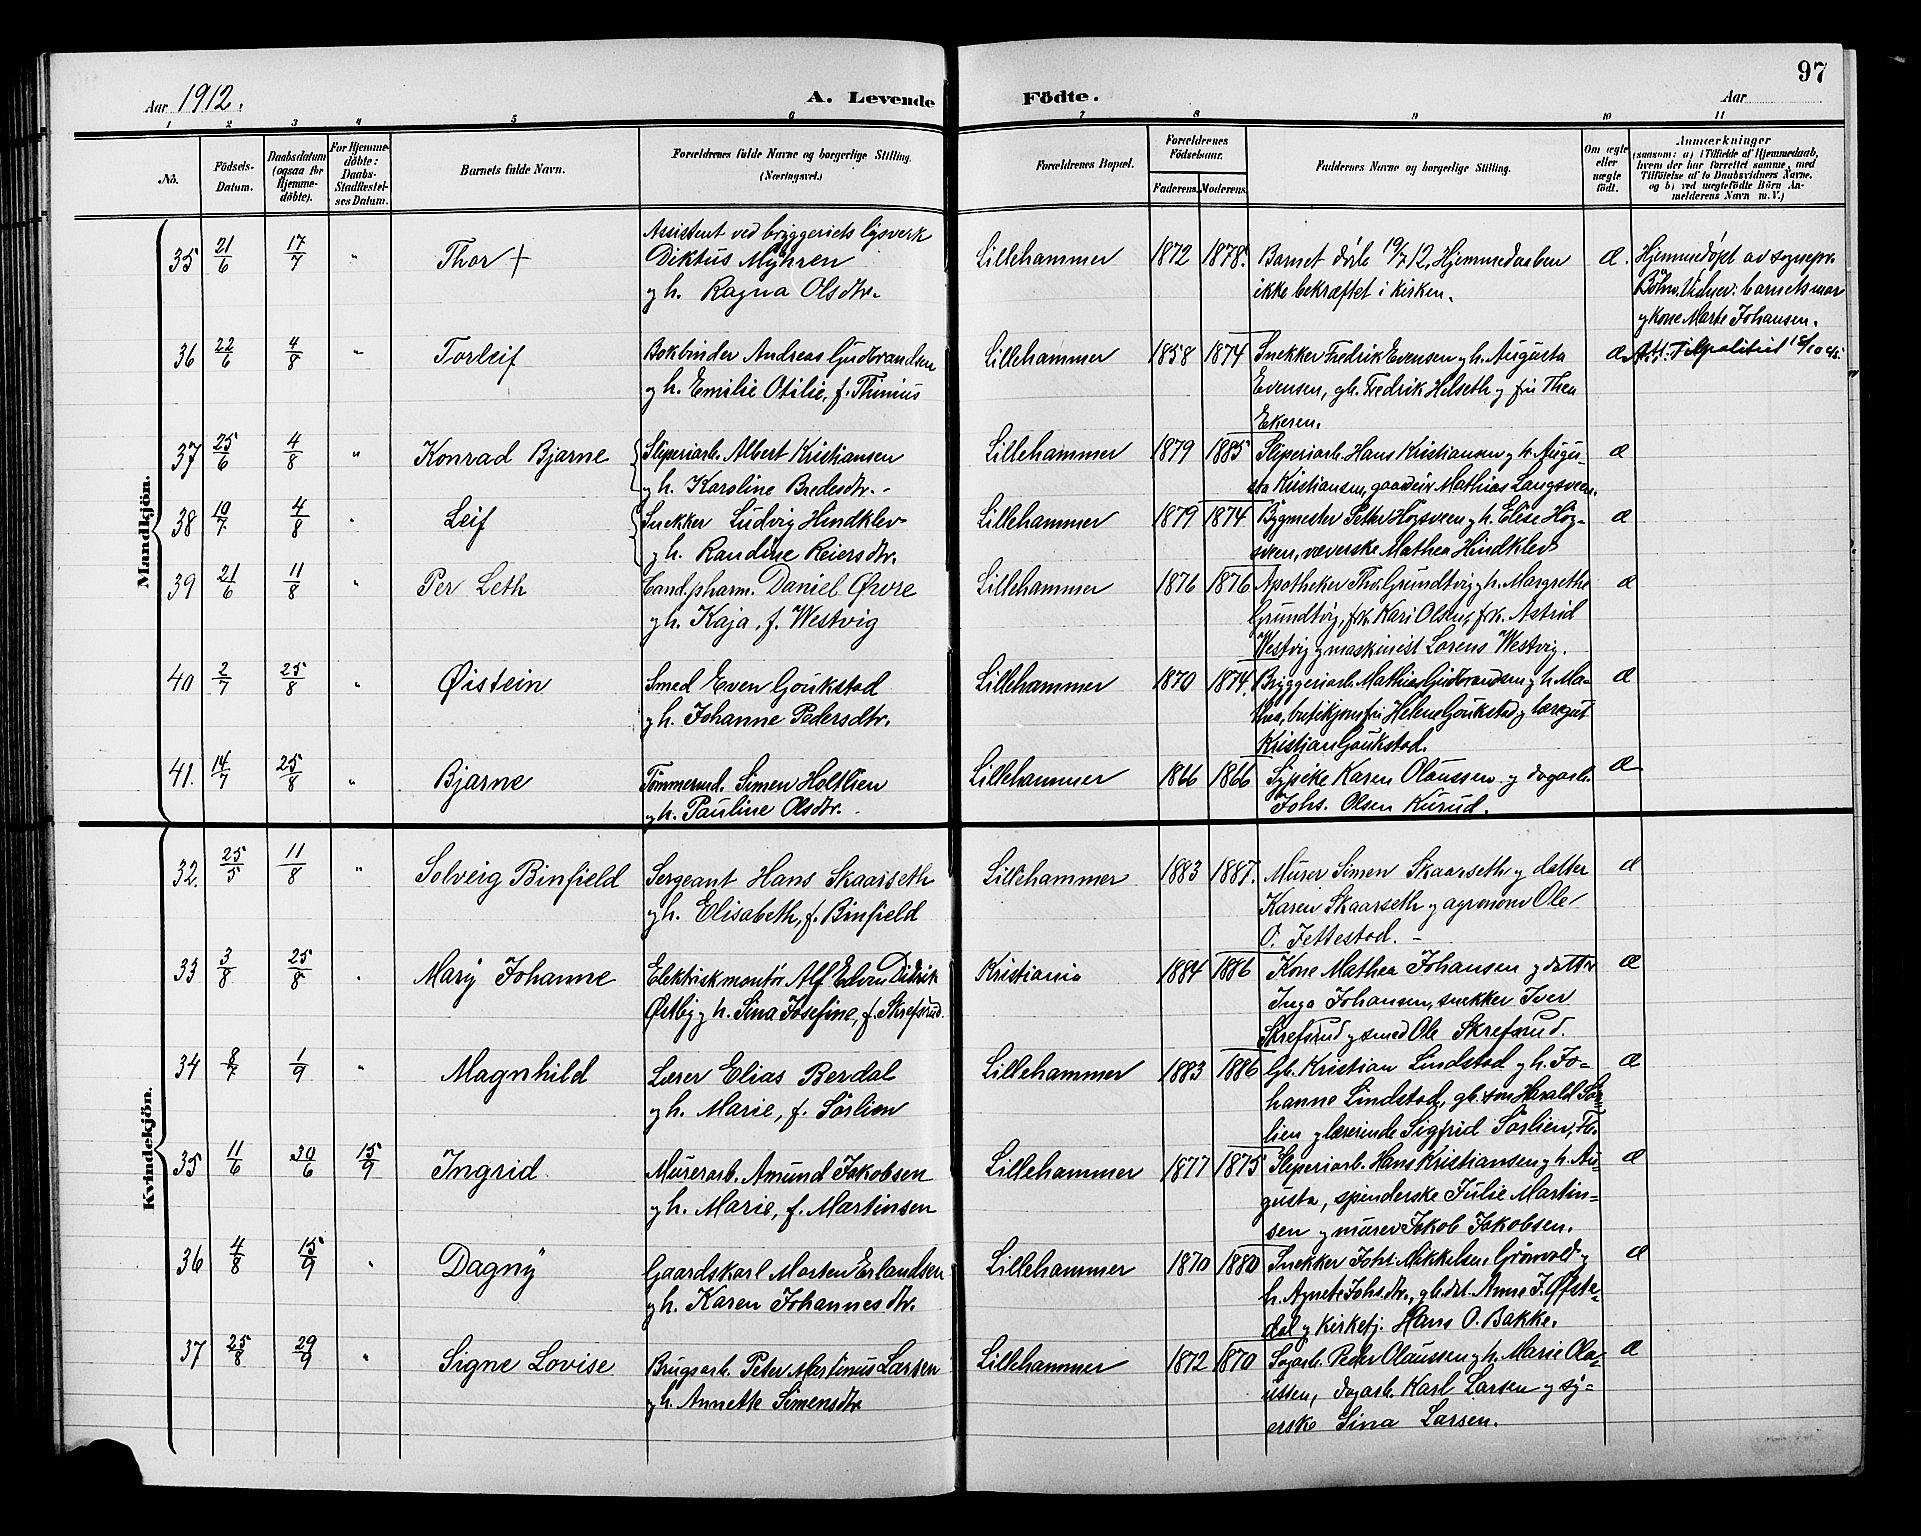 97
Aar 1912.
A. Levende Födte.
Aar
1 2 3 4 5 6 7 8 9 10 11
No.
Födsels-Datum.
Daabsdatum (ogsaa for Hjemme-döbte).
For Hjemme-döbte: Daabs-Stadfæstelses Datum.
Barnets fulde Navn.
Forældrenes fulde Navne og borgerlige Stilling.
(Næringsvei.)
Forældrenes Bopæl.
Forældrenes Födselsaar.
Faderens. Moderens.
Faddernes Navne og borgerlige Stilling.
Om ægte eller uægte födt.
Anmærkninger
(saasom: a) i Tilfælde af Hjemmedaab,
hvem der har forrettet samme, med
Tilföielse af to Daabsvidners Navne.
og b) ved uægtefödte Börn An-
melderens Navn m. V.)
Mandkjön.
35 21/6 17/7 " Thor +
Assistent ved bryggeriets lysverk
Diktus Myhren
g h. Ragna Olsdtr.
Lillehammer 1872 1878.
Barnet döde 19/7 12. Hjemmedaaben
ikke bekræftet i kirken.
æ.
Hjemmedöpt av sognepr.
Böhn. Vidner: barnets mor
g kone Marte Johansen.
36 22/6 4/8 " Torleif
Bokbinder Andreas Gudbrandsen
g h. Emilie Otilie, f. Thinius
Lillehammer 1858 1874
Snekker Fredrik Evensen g h. Augusta
Evensen, gb. Fredrik Helseth g fru Thea
Ekeren.
æ
37 25/6 4/8 " Konrad Bjarne
Sliperiarb. Albert Kristiansen
g h. Karoline Bredesdtr.
Lillehammer 1879 1885
Sliperiarb. Hans Kristiansen g h. Augu-
sta Kristiansen, gaardeier Mathias Langsveen.
æ
38 10/7 4/8 " Leif
Snekker Ludvig Hindklev
g h. Randine Reiersdtr.
Lillehammer 1879 1874
Bygmester Petter Högsveen g h. Elise Hög-
sveen, væverske Mathea Hindklev
æ
39 21/6 11/8 " Per Leth
Cand. pharm. Daniel Øvre
g h. Kaja, f. Westvig
Lillehammer 1876 1876
Apotheker Thv. Grundtvig g h. Margrethe
Grundtvig, frk. Kari Olsen, frk. Astrid
Westvig g maskinist Lorens Westvig.
æ
40 2/7 25/8 " Øistein
Smed Even Goukstad
g h. Johanne Pedersdtr.
Lillehammer 1870 1874
Bryggeriarb. Mathias Gudbrandsen g h. Ma-
thea, butikjomfru Helene Goukstad g læregut
Kristian Goukstad.
æ
41. 14/7 25/8 " Bjarne
Tömmermd. Simen Holtlien
g h. Pauline Olsdtr.
Lillehammer 1866 1866
Sypike Karen Olaussen g dagarb.
Johs. Olsen Kurud.
æ
Kvindekjön.
32. 25/5 11/8 " Solveig Binfield
Sergeant Hans Skaarseth
g h. Elisabeth, f. Binfield
Lillehammer 1883 1887.
Murer Simen Skaarseth g datter
Karen Skaarseth g agronom Ole
O. Jettestad.
æ
33 3/8 25/8 " Mary Johanne
Elektriskmontör Alf Edvin Didrik
Østby g h. Sina Josefine, f. Skrefsrud.
Kristiania 1884 1886
Kone Mathea Johansen g datter
Inga Johansen, snekker Iver
Skrefsrud g smed Ole Skrefsrud.
æ
34 8/7 1/9 " Magnhild
Lærer Elias Berdal
g h. Marie, f. Sörlien
Lillehammer 1883 1886
Gb. Kristian Lindstad g h. Jo-
hanne Lindstad, gb. sön Harald Sör-
lien g lærerinde Sigfrid Sörlien, Fb.
æ
35 11/6 30/6 15/9 Ingrid
Murerarb. Amund Jakobsen
g h. Marie, f. Martinsen
Lillehammer 1877 1875
Sliperiarb. Hans Kristiansen g h. Au-
gusta, spinderske Julie Martin-
sen g murer Jakob Jakobsen.
æ
36 4/8 15/9 " Dagny
Gaardskarl Morten Erlandsen
g h. Karen Johannesdtr.
Lillehammer 1870 1880
Snekker Johs. Mikkelsen Grönvold g
h. Agnete Johsdtr., gb. dat. Anne J. Øfste-
dal g kirketj. Hans O. Bakke.
æ
37 25/8 29/9 " Signe Lovise
Brugsarb. Peter Martinus Larsen
g h. Annette Simensdtr
Lillehammer 1872 1870
Sagarb. Peder Olaussen g h. Marie Ola-
ussen, dagarb. Karl Larsen g sy-
erske Sina Larsen.
æ